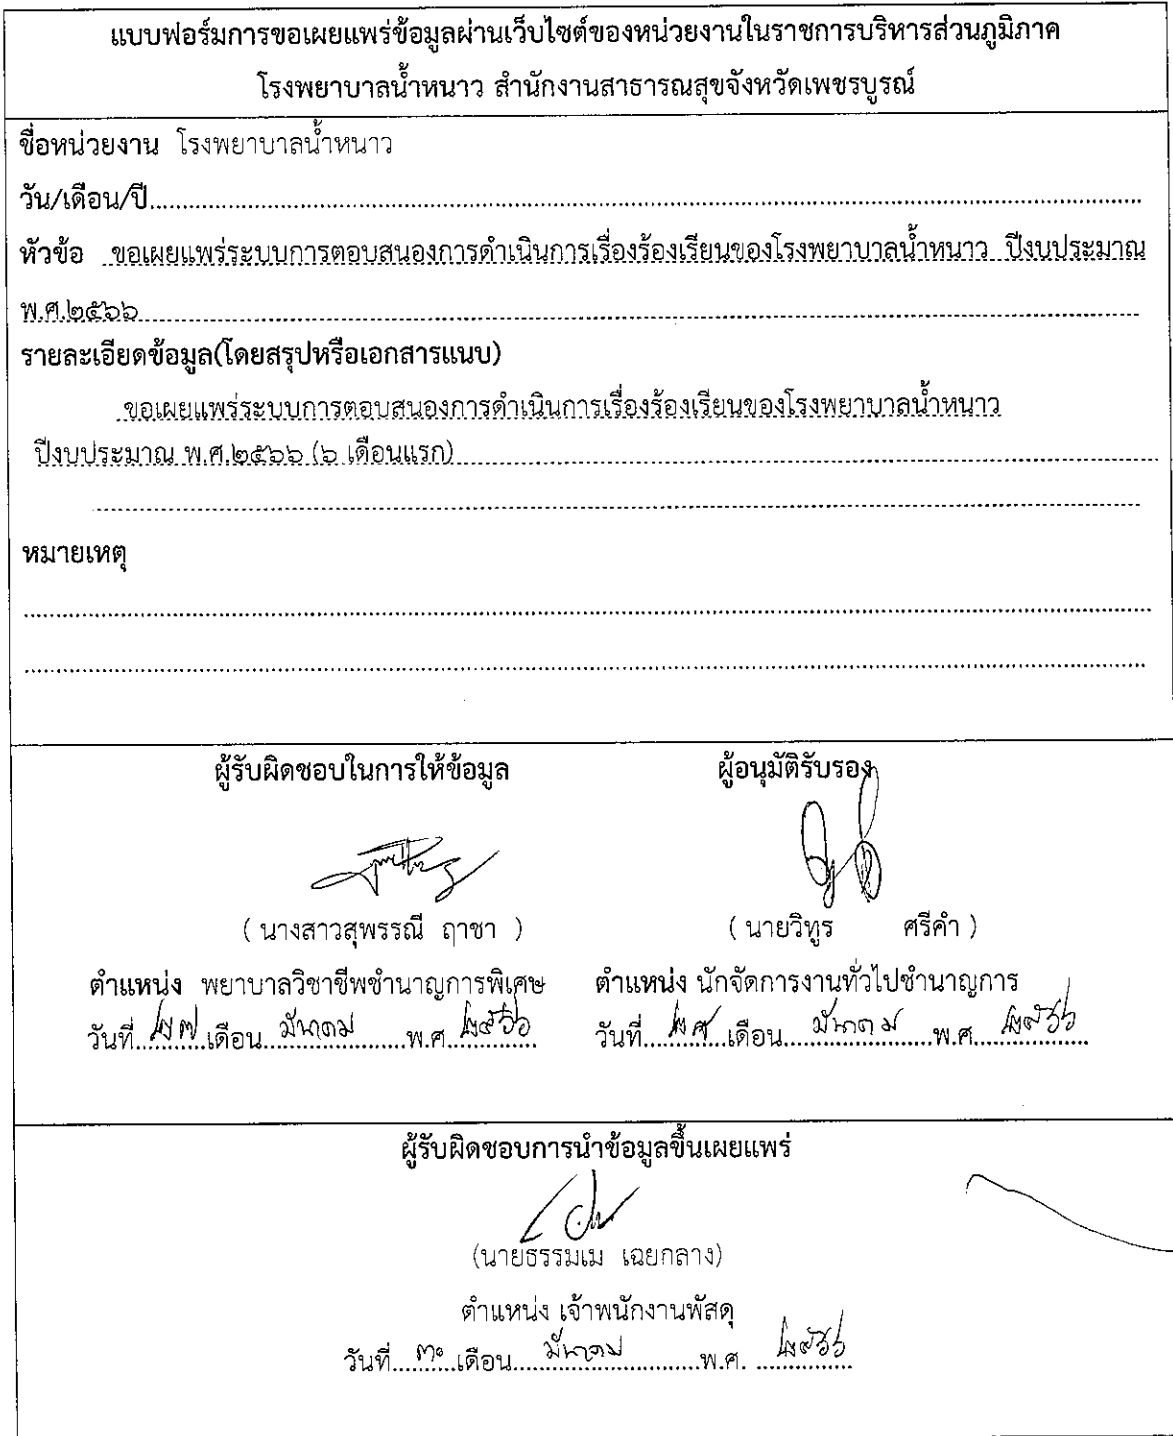 แบบฟอร์มการขอเผยแพร่ข้อมูลผ่านเว็บไซต์ของหน่วยงานในราชการบริหารส่วนภูมิภาค
โรงพยาบาลน้ำหนาว สำนักงานสาธารณสุขจังหวัดเพชรบูรณ์
ชื่อหน่วยงาน โรงพยาบาลน้ำหนาว
วัน/เดือน/ปี
หัวข้อ ขอเผยแพร่ระบบการตอบสนองการดำเนินการเรื่องร้องเรียนของโรงพยาบาลน้ำหนาว ปีงบประมาณ
พ.ศ.๒๕๖๖
รายละเอียดข้อมูล(โดยสรุปหรือเอกสารแนบ)
ขอเผยแพร่ระบบการตอบสนองการดำเนินการเรื่องร้องเรียนของโรงพยาบาลน้ำหนาว
ปีงบประมาณ พ.ศ.๒๕๖๖ (๖ เดือนแรก)
หมายเหตุ
ผู้รับผิดชอบในการให้ข้อมูล ผู้อนุมัติรับรอง
( นางสาวสุพรรณี ฤาชา ) ( นายวิทูร ศรีคำ )
ตำแหน่ง พยาบาลวิชาชีพชำนาญการพิเศษ ตำแหน่ง นักจัดการงานทั่วไปชำนาญการ
วันที่ ๒๗ เดือน มีนาคม พ.ศ. ๒๕๖๖ วันที่ เดือน มีนาคม พ.ศ. ๒๕๖๖
ผู้รับผิดชอบการนำข้อมูลขึ้นเผยแพร่
(นายธรรมเม เฉยกลาง)
ตำแหน่ง เจ้าพนักงานพัสดุ
วันที่ ๓๐ เดือน มีนาคม พ.ศ. ๒๕๖๖